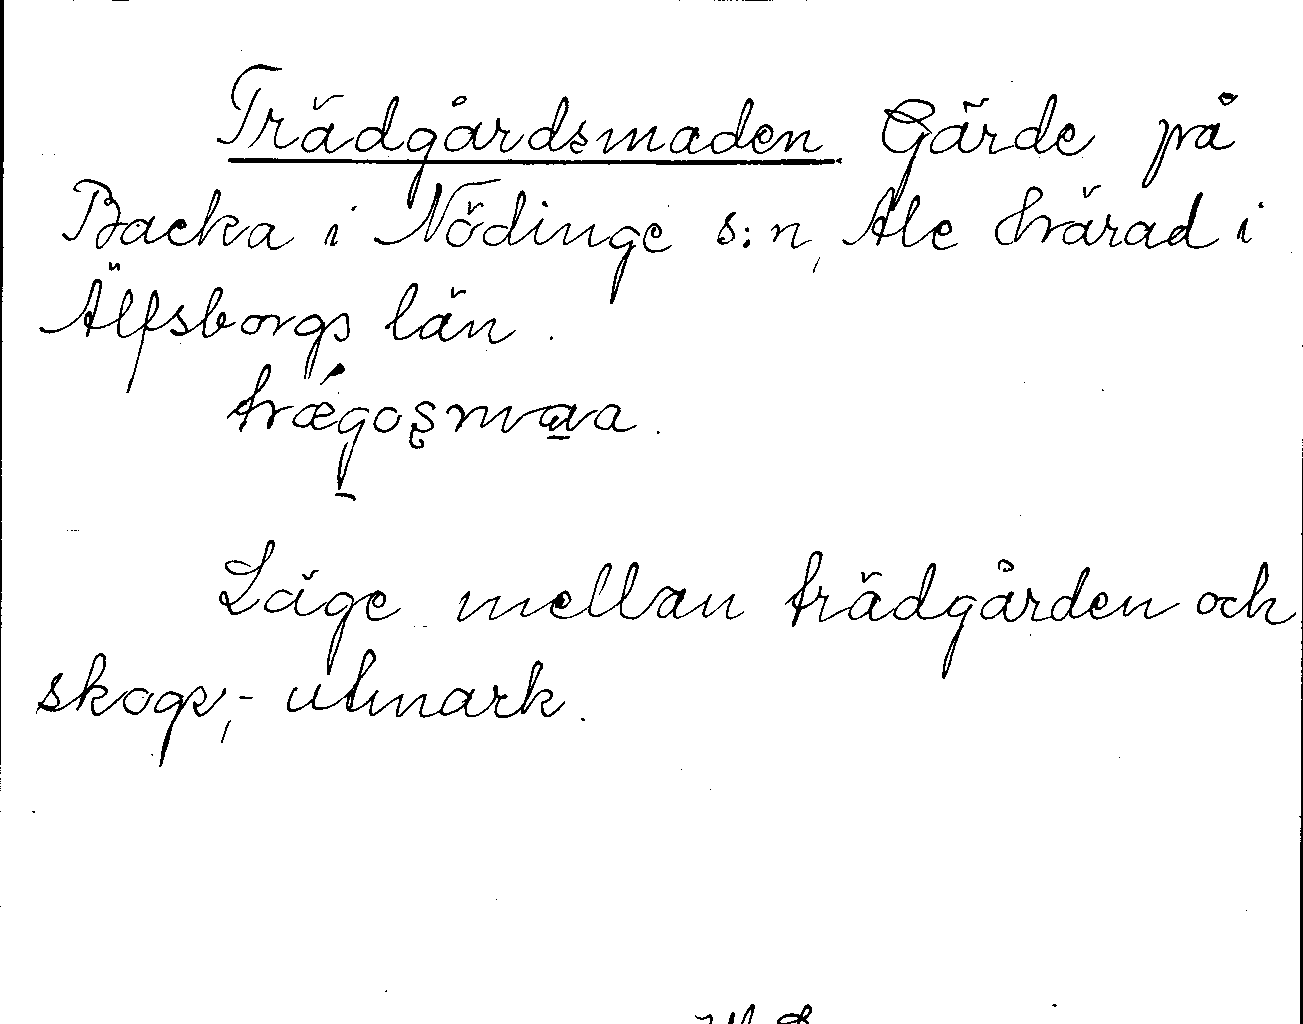 Trädgårdsmaden Gärde på
Backa i Nödinge s:n, Ale härad i
Älfsborgs län.
trǽgo̱s̨ma̱a.
Läge mellan trädgården och
skogs,- utmark.